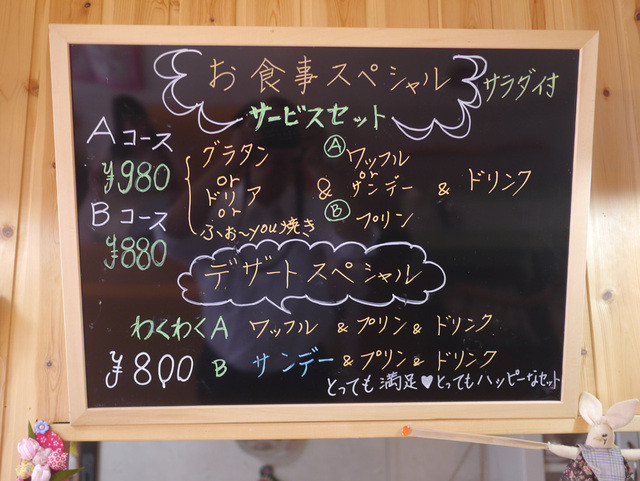 お食事スペシャル
サラダ付
サービスセット
Aコース
¥980
Bコース
¥880
グラタン
or
ドリア
or
ふぉ〜you焼き
&
Ⓐ ワッフル
or
サンデー
Ⓑ プリン
& ドリンク
デザートスペシャル
わくわくA ワッフル & プリン & ドリンク
¥800 B サンデー & プリン & ドリンク
とっても満足♥とってもハッピーなセット